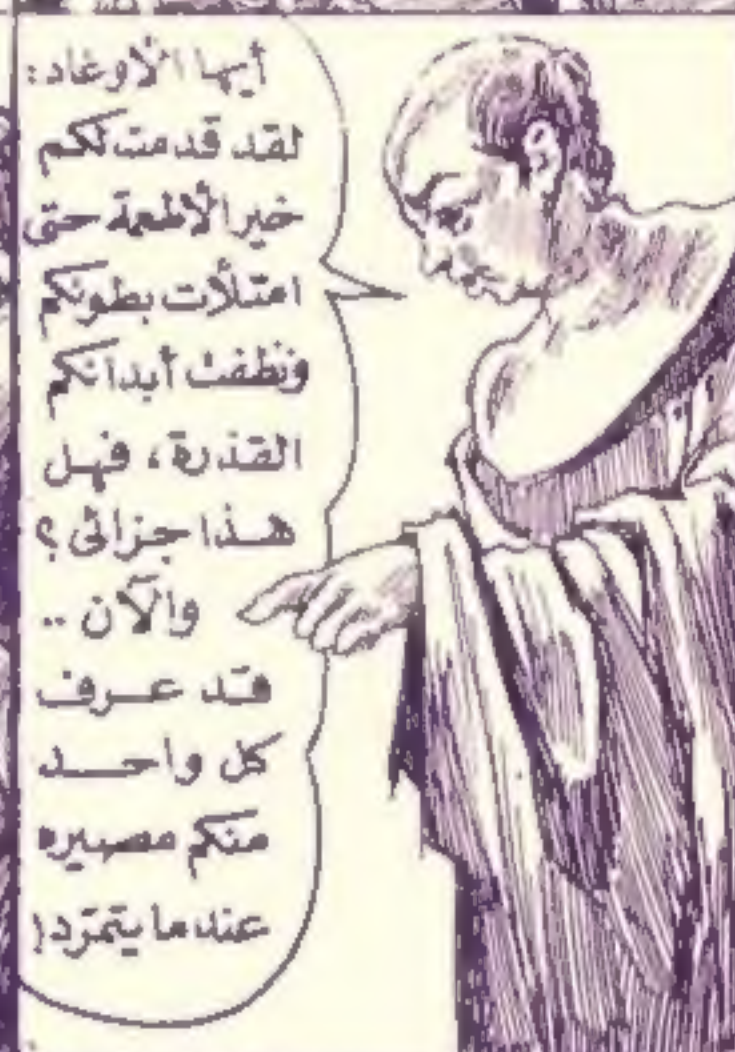 أيها الأوغاد:
لقد قدمت لكم
خير الأطعمة حتى
امتلأت بطونكم
ونظفت أبدانكم
القذرة، فهل
هذا جزائى؟
والآن ..
فقد عرف
كل واحد
منكم مصيره
عندما يتمرّد!